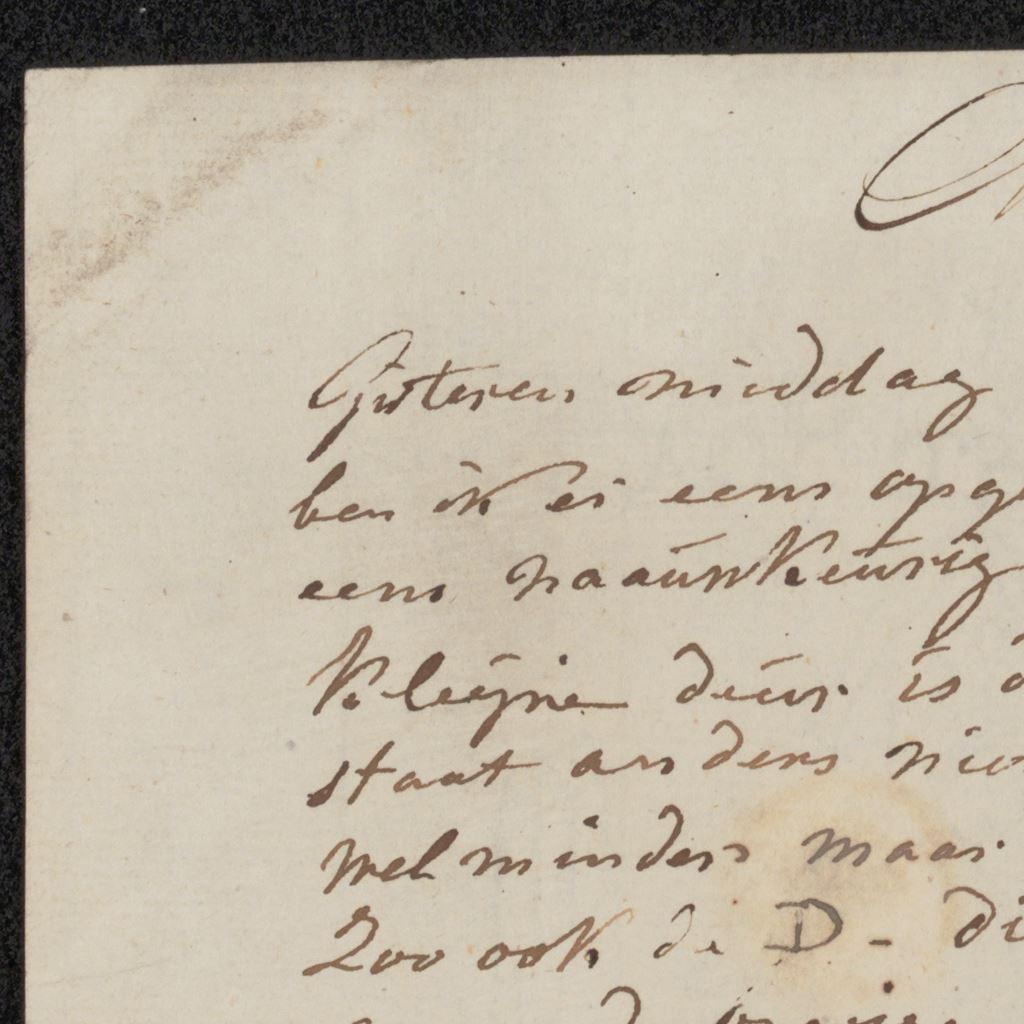 Gisteren middag
ben ik er eens opge
een naauwkeurig
kleijne deur is
staat anders nie
wel minder maar
Zoo ook de D - di